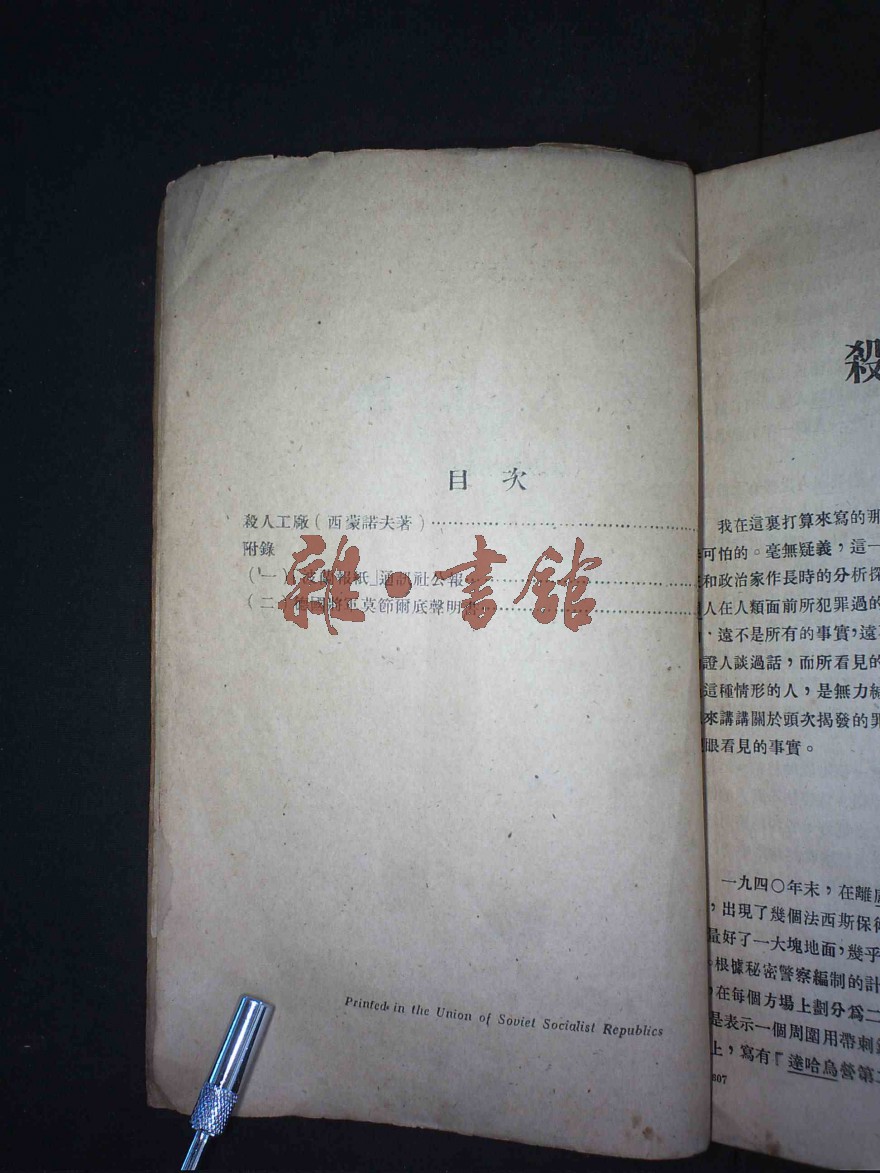 目次
殺人工廠(西蒙諾夫著)
附錄
(一)「波蘭報紙」通訊社公報
(二)德國將軍莫節爾底聲明書
Printed in the Union of Soviet Socialist Republics
雜·書館
殺
我在這裏打算來寫的那
可怕的。毫無疑義,這一
和政治家作長時的分析探
人在人類面前所犯罪過的
、遠不是所有的事實,遠
證人談過話,而所看見的
這種情形的人,是無力
來講講關於頭次揭發的罪
眼看見的事實。
一九四〇年末,在離
,出現了幾個法西斯保衛
量好了一大塊地面,幾乎
。根據秘密警察編制的計
,在每個方場上劃分爲二
是表示一個周圍用帶刺
上,寫有『達哈烏營第二
607